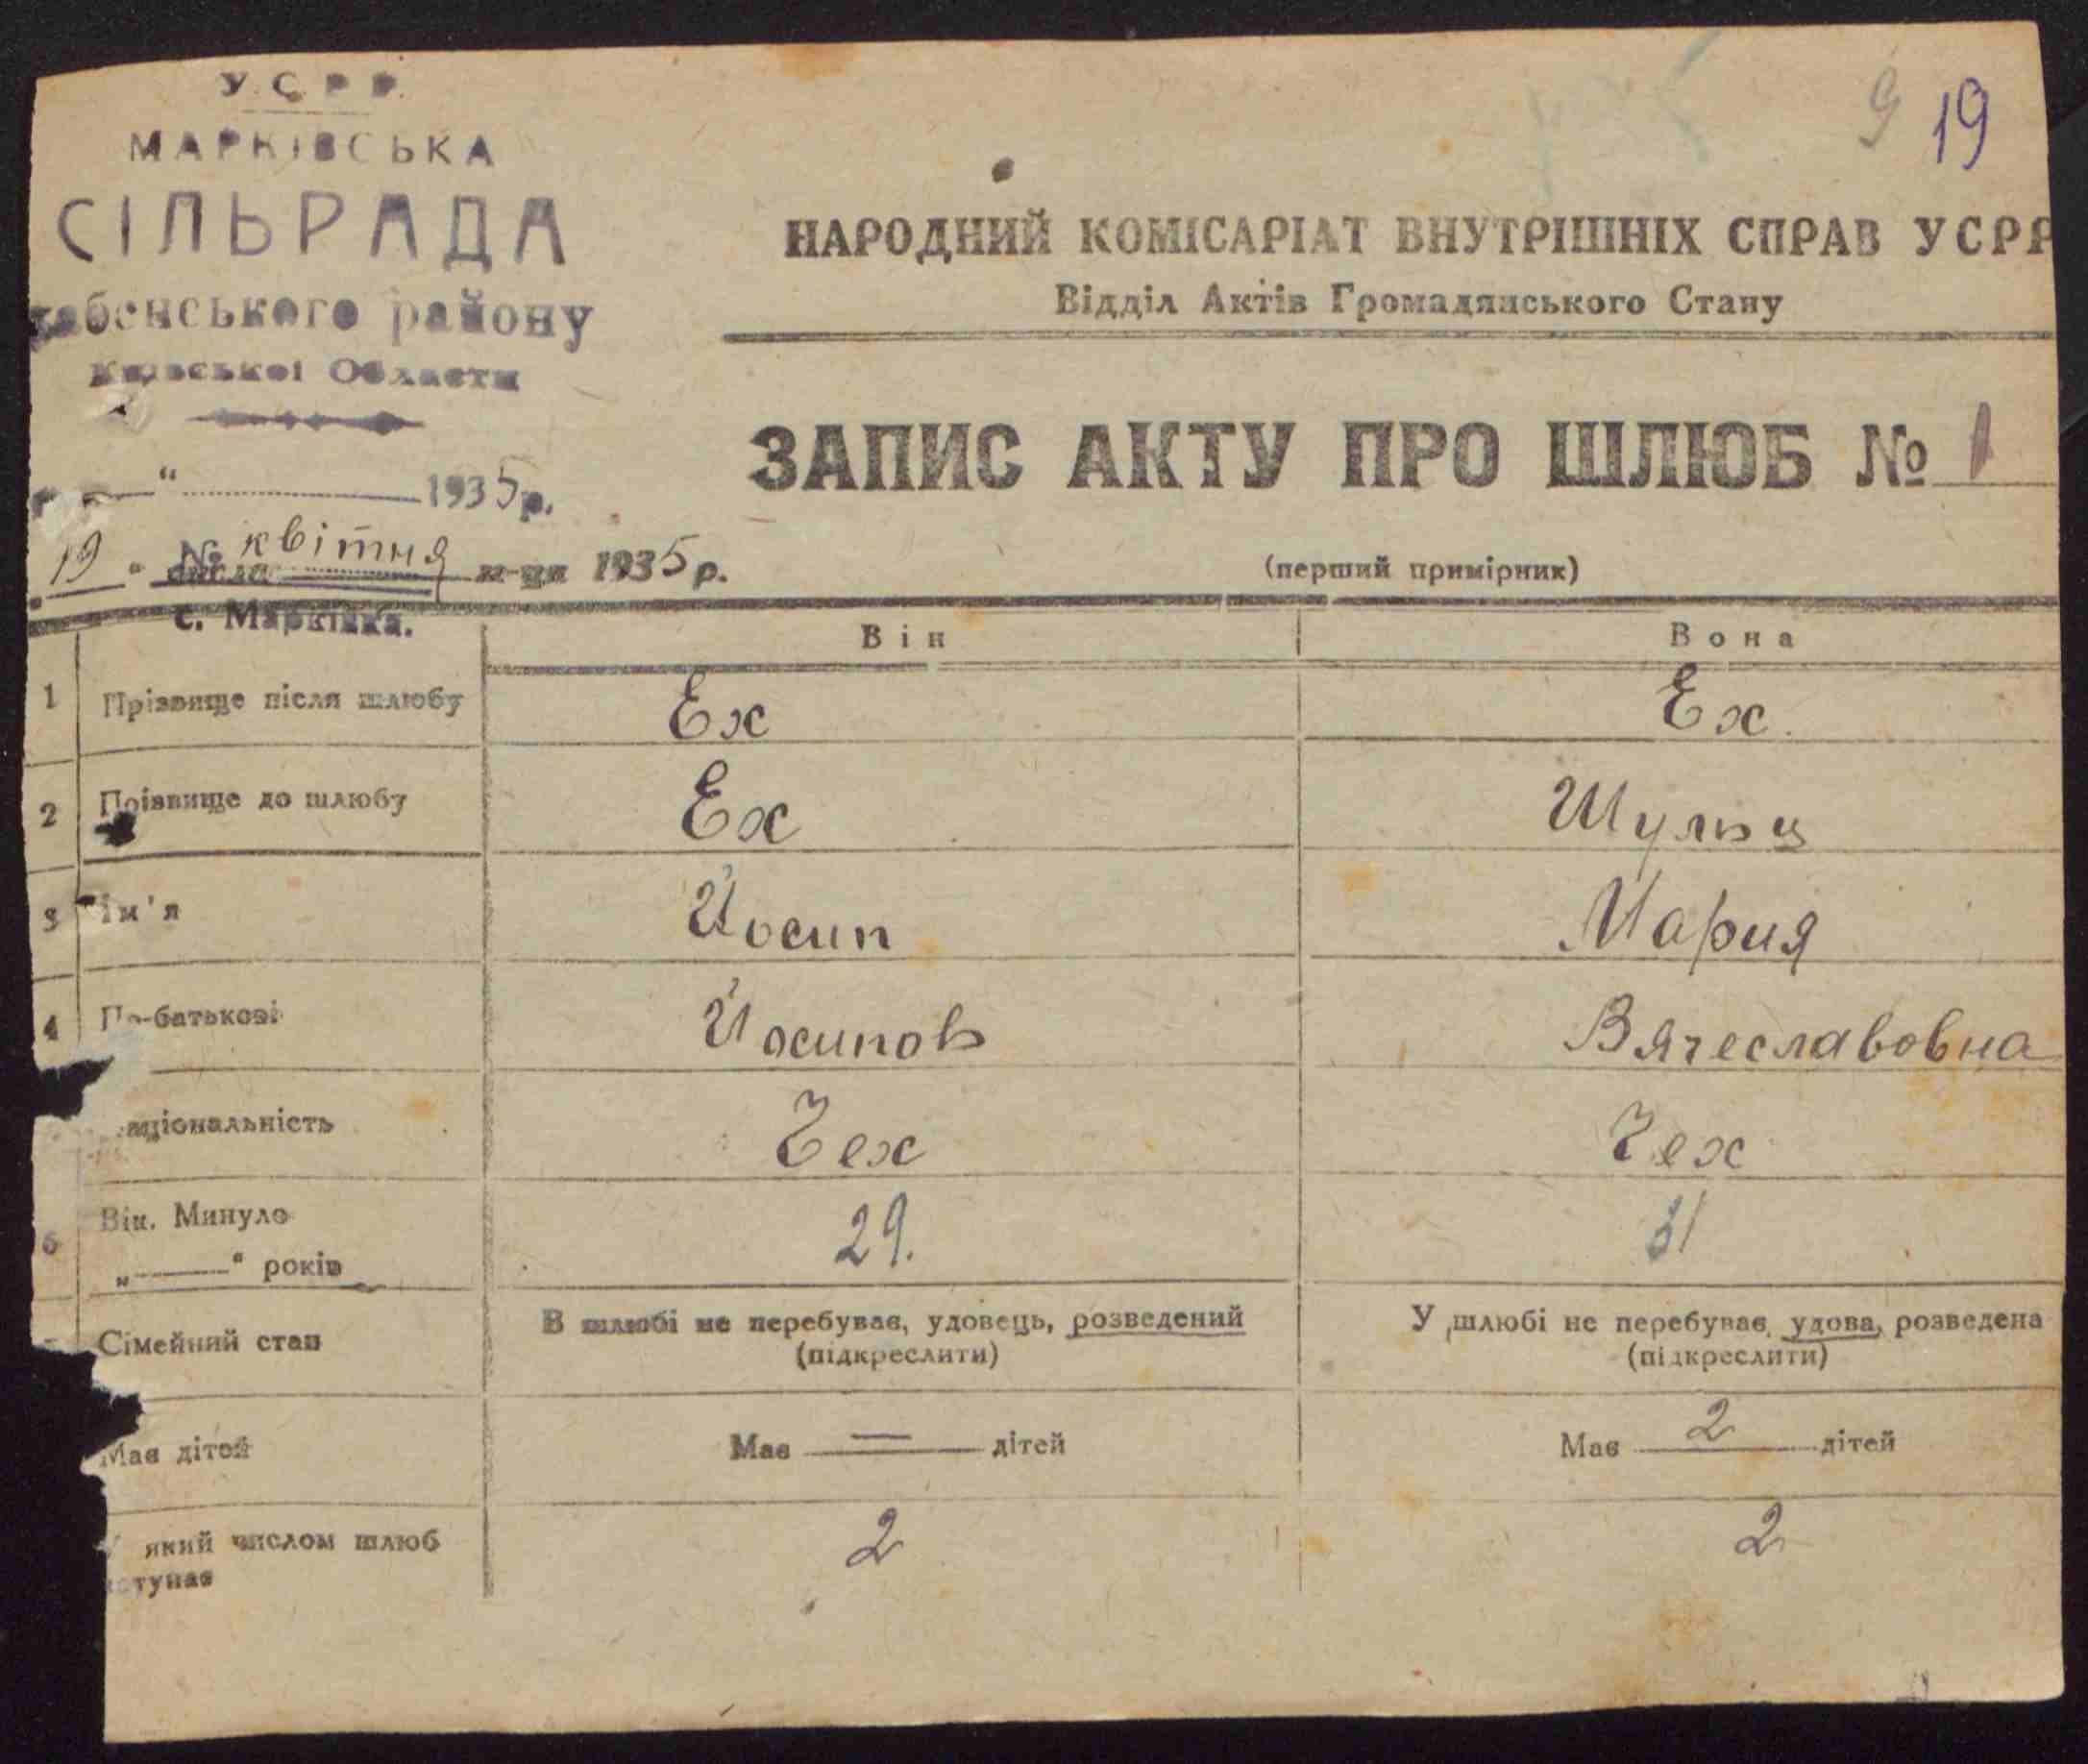 У.С.Р.Р.
МАРКІВСЬКА
СІЛЬРАДА
бенського району
Київської Области
" 1935 р.
№
с. Марківка.
9 19
НАРОДНИЙ КОМІСАРІАТ ВНУТРІШНІХ СПРАВ УСРР
Відділ Актів Громадянського Стану
ЗАПИС АКТУ ПРО ШЛЮБ № 1
19 " числа квітня м-ця 1935 р.
(перший примірник)
Він Вона
1 Прізвище після шлюбу Ех Ех.
2 Прізвище до шлюбу Ех Шульц
3 Ім'я Йосип Мария
4 По-батькові Йосипов Вячеславовна
аціональність Чех Чех
6 Вік. Минуло 29. 31
„ — “ років
Сімейний стан В шлюбі не перебував, удовець, розведений У шлюбі не перебував, удова, розведена
(підкреслити) (підкреслити)
Має дітей Має — дітей Має 2 дітей
який числом шлюб 2 2
ступає